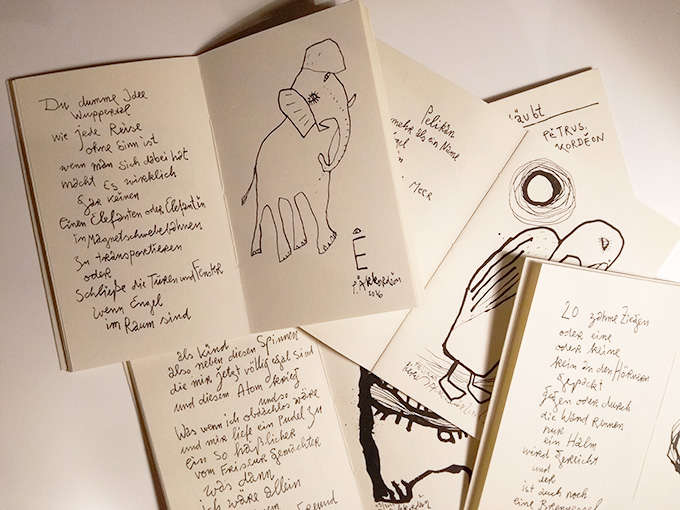 Du dumme Idee
Wuppertal
wie jede Reise
ohne Sinn ist
wenn man sich dabei hat
macht Es wirklich
gar keinen
Einen Elefanten oder Elefantin
in Magnetschwebebahnen
zu transportieren
oder
Schließe die Türen und Fenster
wenn Engel
im Raum sind
Ê
2016
Pelikan
mehr als ein Name
Meer
äubt
PÈTRUS
KORDÈON
als Kind
also neben diesen Spinnen
die mir jetzt völlig egal sind
und diesem Atomkrieg
und so
Was wenn ich obdachlos wäre
und mir liefe ein Pudel zu
ein so häßlicher
vom Friseur gemachter
was dann
Ich wäre allein
Freund
20 zahme Ziegen
oder eine
oder keine
kein in den Hörnern
gepackt
gegen oder durch
die Wand Rinnen
nur
ein Halm
wird gereicht
und
der
ist auch noch
eine